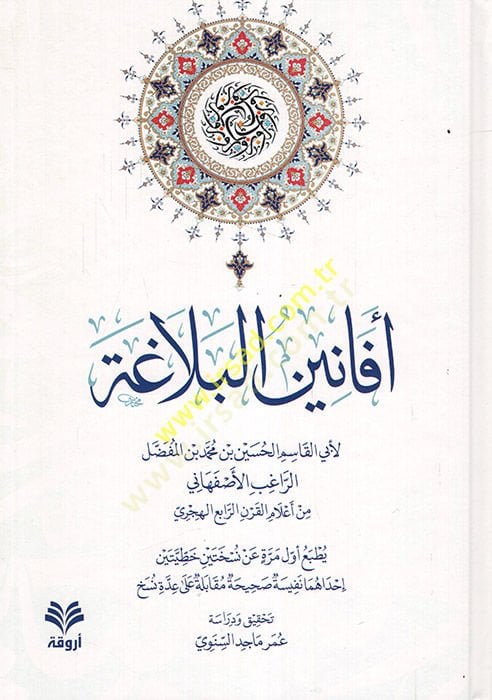 أفانين البلاغة
لأبي القاسم الحسين بن محمد بن المفضل
الراغب الأصفهاني
من أعلام القرن الرابع الهجري
يطبع أول مرة عن نسختين خطيتين
إحداهما نفيسة صحيحة مقابلة على عدة نسخ
تحقيق ودراسة
عمر ماجد السنوي
أروقة
www.ursad.com.tr